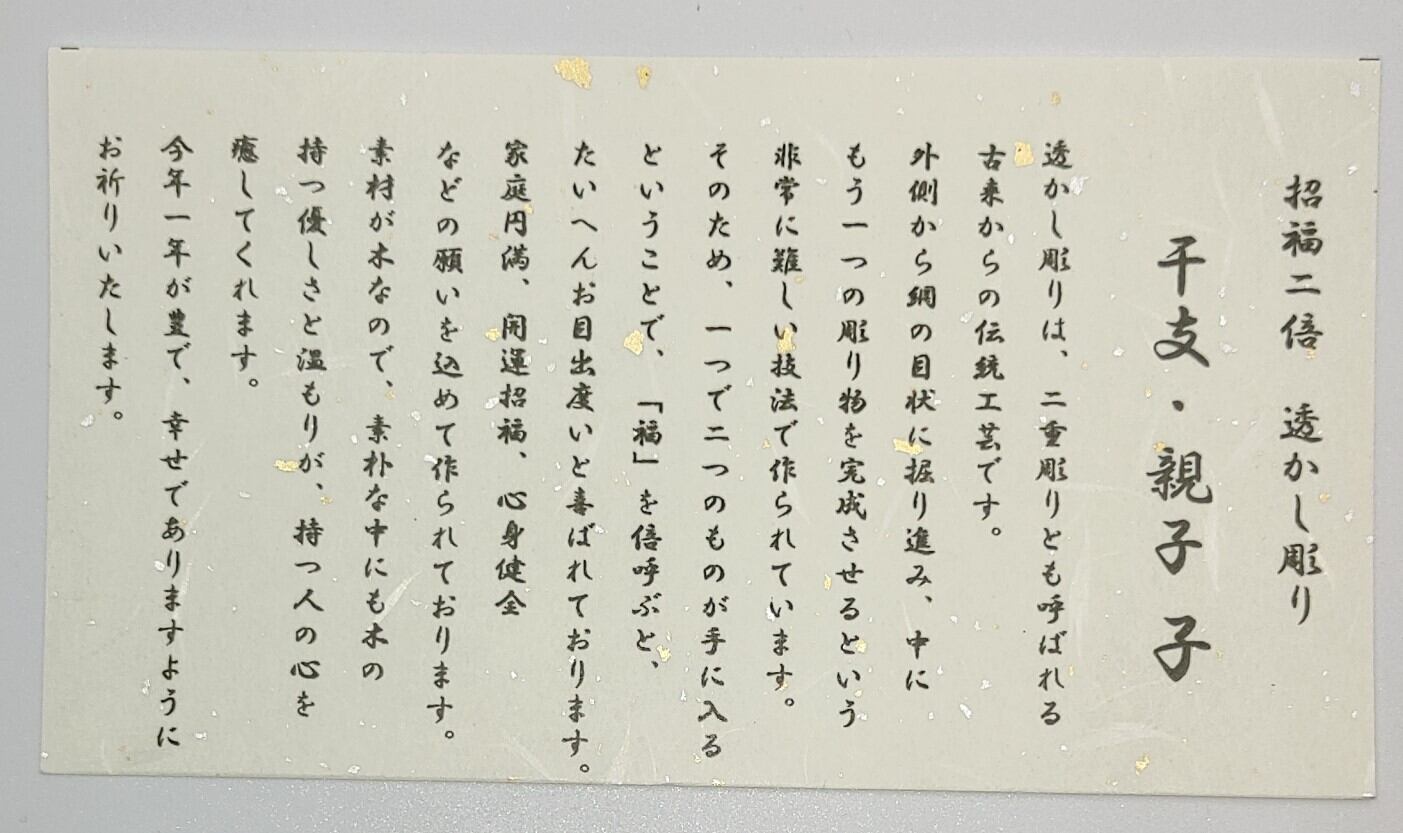 招福二倍　透かし彫り
干支・親子　子
透かし彫りは、二重彫りとも呼ばれる
古来からの伝統工芸です。
外側から網の目状に掘り進み、中に
もう一つの彫り物を完成させるという
非常に難しい技法で作られています。
そのため、一つで二つのものが手に入る
ということで、「福」を倍呼ぶと、
たいへんお目出度いと喜ばれております。
家庭円満、開運招福、心身健全
などの願いを込めて作られております。
素材が木なので、素朴な中にも木の
持つ優しさと温もりが、持つ人の心を
癒してくれます。
今年一年が豊で、幸せでありますように
お祈りいたします。